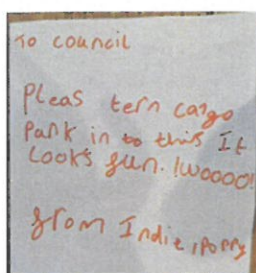 To council
Pleas tern cargo
Park in to this It
Looks fun. !woooo!
from Indie, Poppy